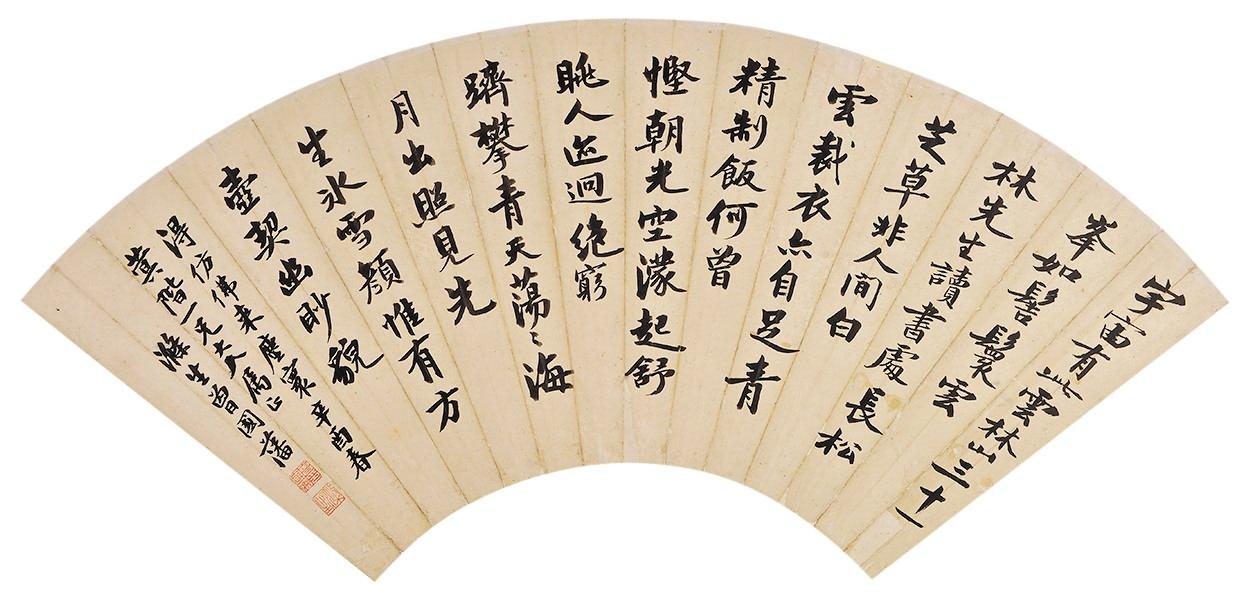 宇宙有此雲林山三十一
峯如髻鬟雲
林先生讀書處長松
芝草非人間白
雲裁衣亦自足青
精制飯何曾
慳朝光空濛起舒
眺人迹迥絕窮
躋攀青天蕩〻海
月出照見先
生冰雪顏惟有方
壺契幽眇貌
得仿佛来塵寰辛酉春
階一兄大人屬正
滌生曾國藩